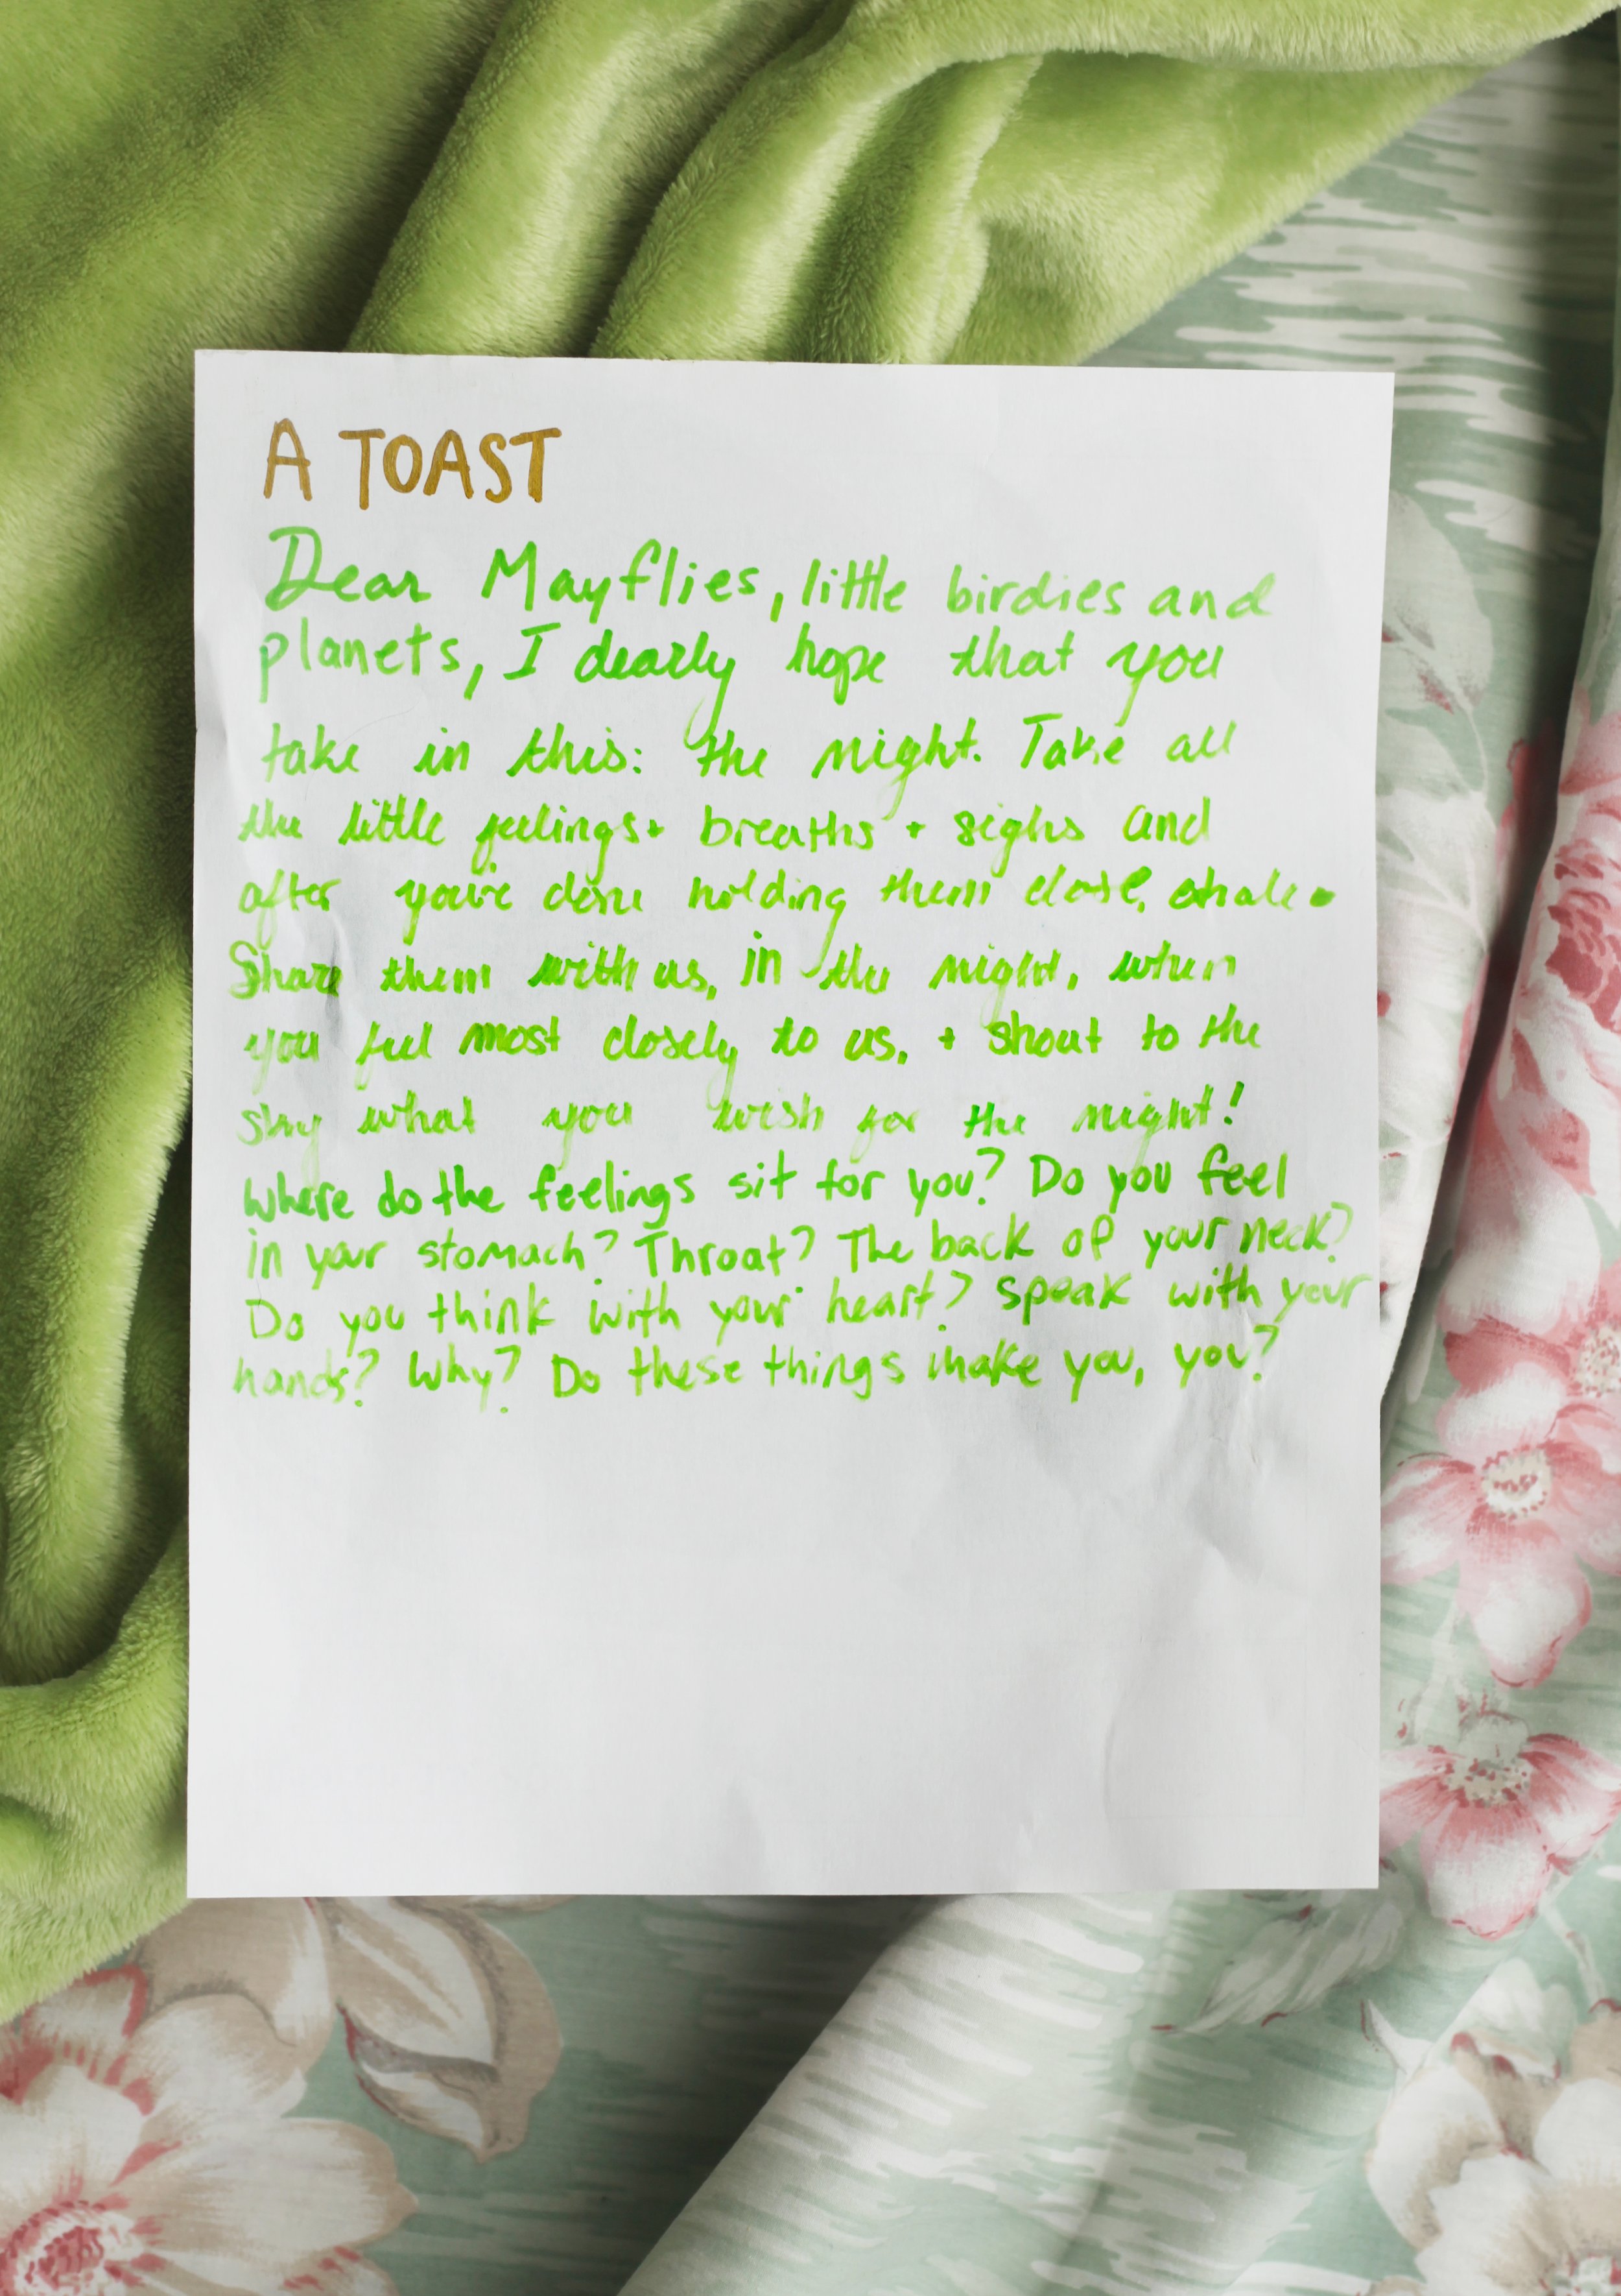 A TOAST
Dear Mayflies, little birdies and
planets, I dearly hope that you
take in this: the night. Take all
the little feelings + breaths + sighs and
after you've done holding them close, exhale.
Share them with us, in the night, when
you feel most closely to us, + shout to the
sky what you wish for the night!
Where do the feelings sit for you? Do you feel
in your stomach? Throat? The back of your neck?
Do you think with your heart? Speak with your
hands? Why? Do these things make you, you?